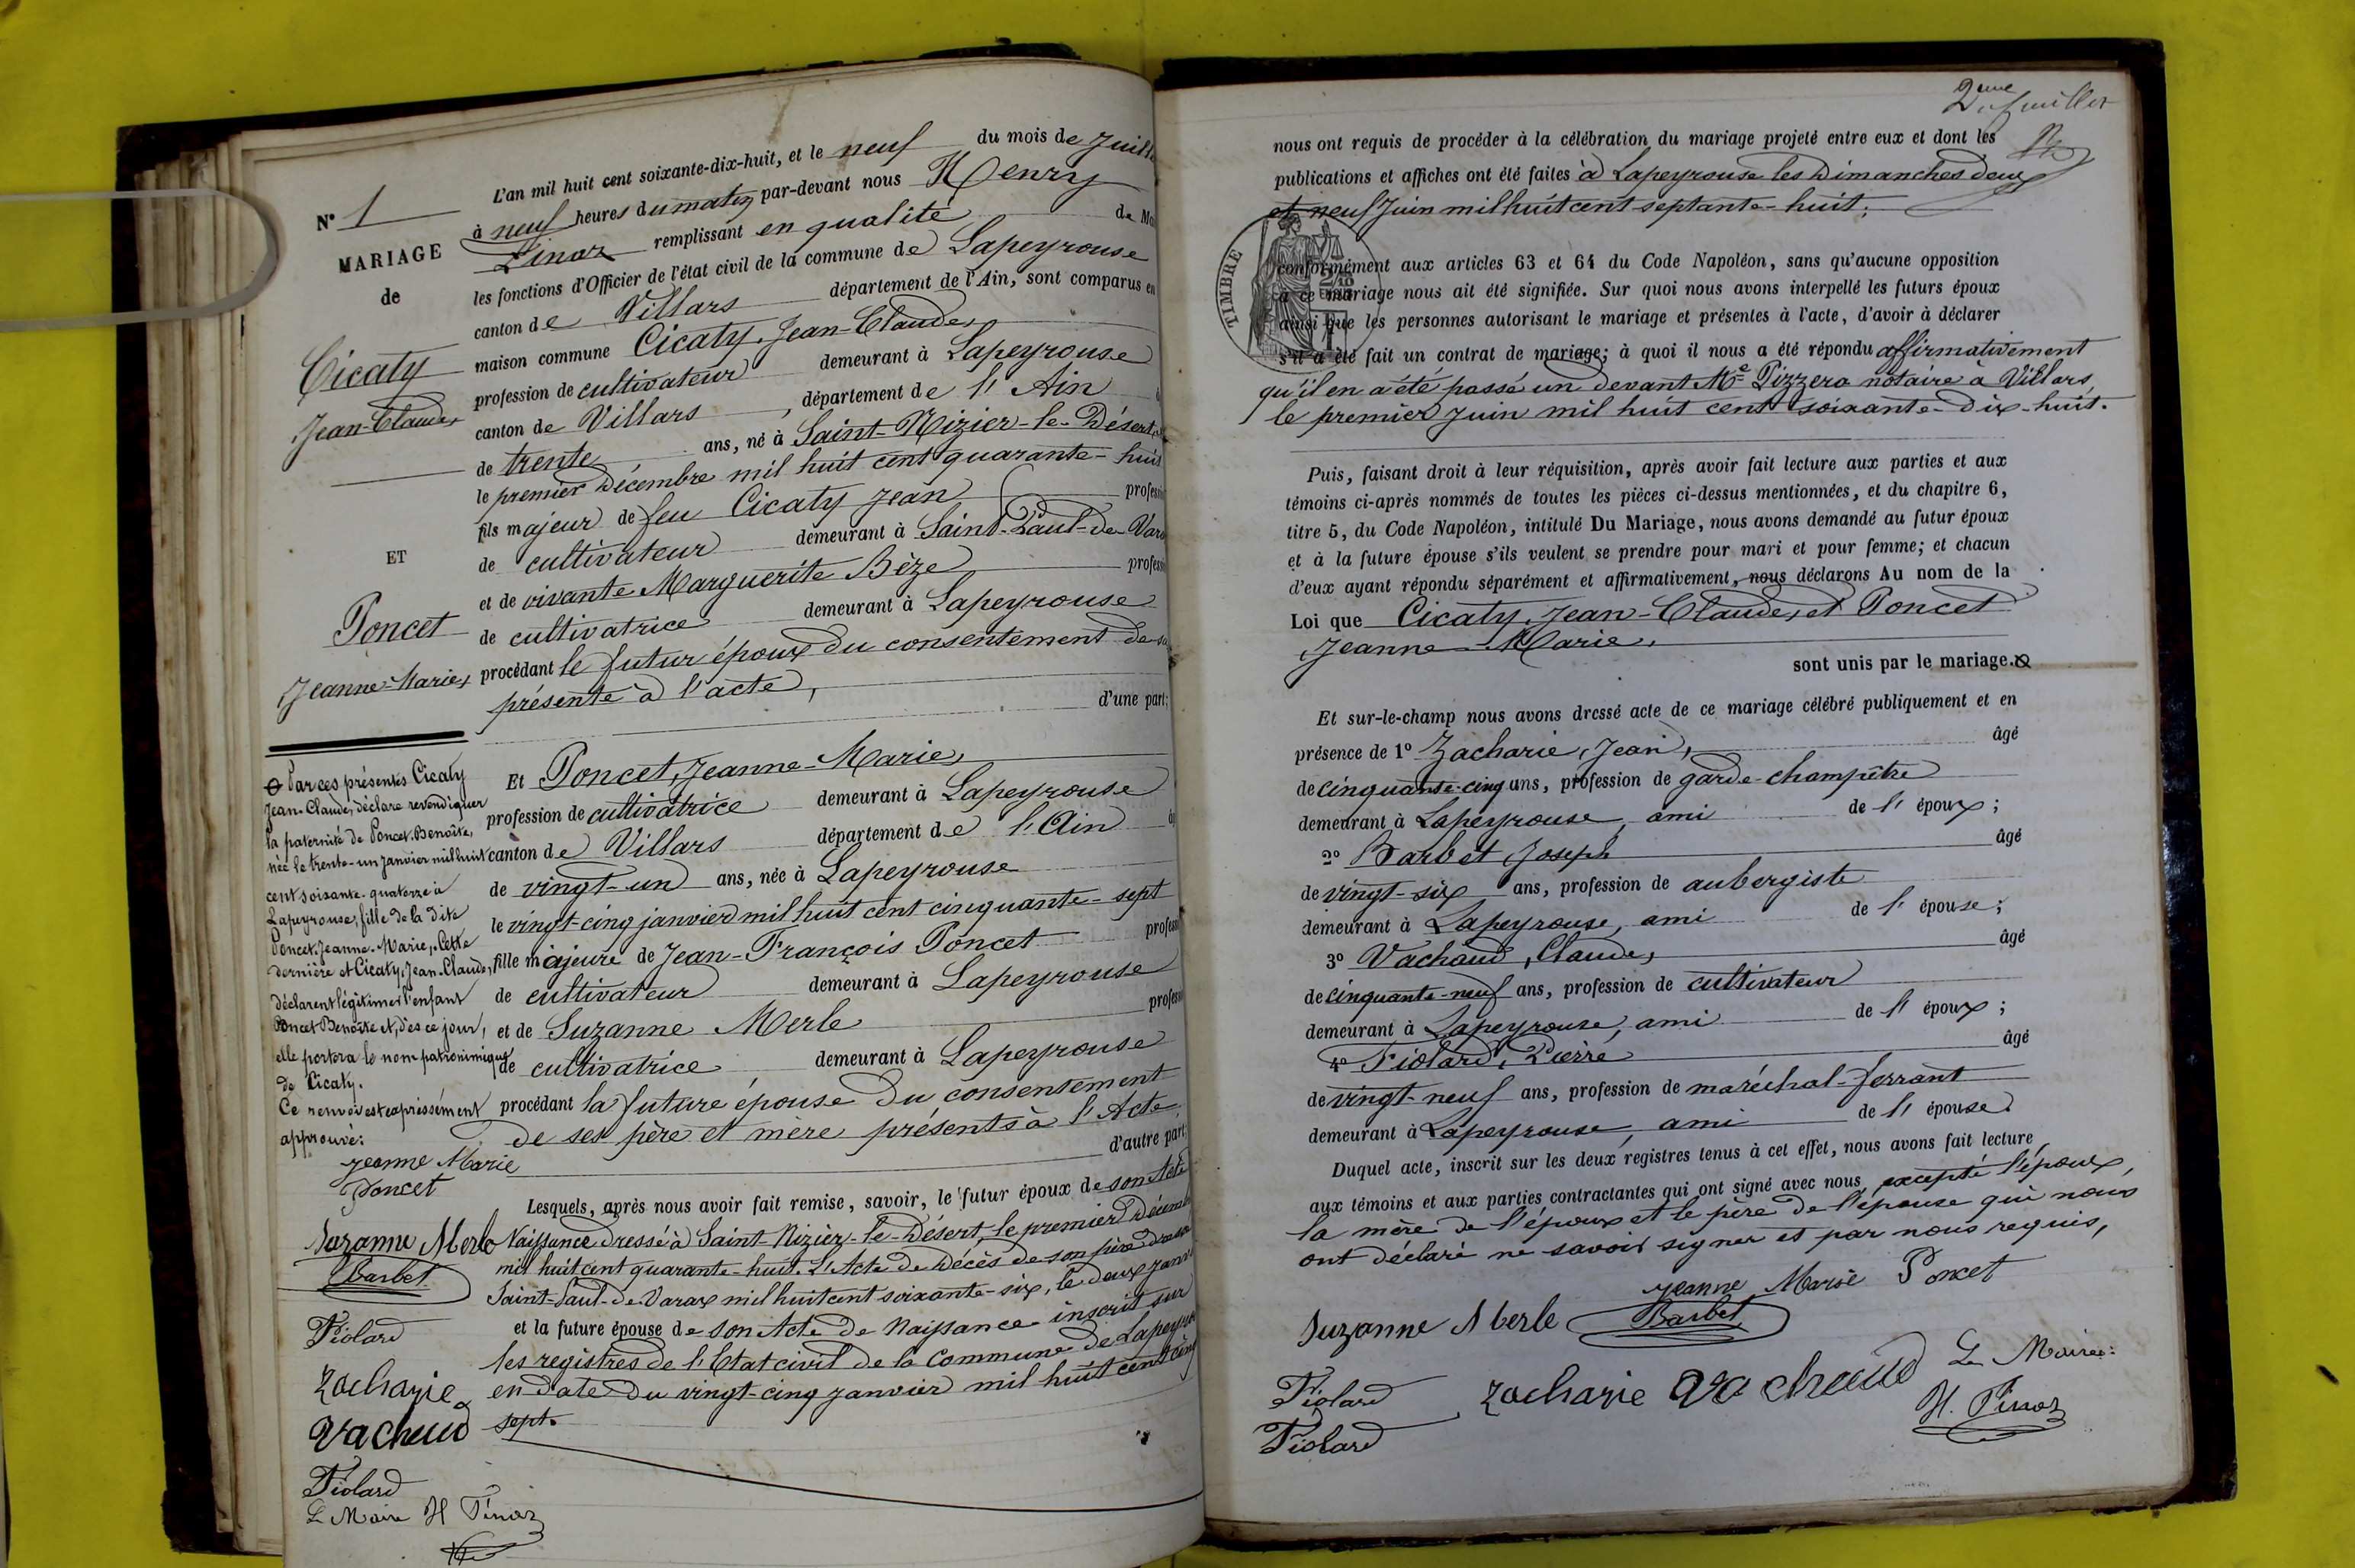 N° 1
MARIAGE
de
Cicaty
Jean-Claude,
ET
Poncet
Jeanne-Marie,
Par ces présentes Cicaty
Jean-Claude, déclare revendiquer
la paternité de Poncet Benoîte,
née le trente-un janvier mil huit
cent soixante-quatorze à
Lapeyrouse, fille de la dite
Poncet Jeanne-Marie, Cette
dernière et Cicaty, Jean-Claude,
déclarent légitimer l'enfant
Poncet Benoîte et, dès ce jour,
elle portera le nom patronimique
de Cicaty.
Ce renvoi est expressément
approuvé:
Jeanne Marie
Poncet
Suzanne Merle
Barbet
Piolard
Zacharie
Vachaud
Piolard
Le Maire H
L'an mil huit cent soixante-dix-huit, et le neuf du mois de Juill
à neuf heures du matin par-devant nous Henry
remplissant en qualité de Ma
les fonctions d'Officier de l'état civil de la commune de Lapeyrouse
canton de Villars département de l'Ain, sont comparus en
maison commune Cicaty, Jean-Claude,
profession de cultivateur demeurant à Lapeyrouse
canton de Villars, département de l'Ain
de trente ans, né à Saint-Nizier-le-Désert,
le premier Décembre mil huit cent quarante-huit
fils majeur de feu Cicaty Jean professi
de cultivateur demeurant à Saint-Paul-de-Vara
et de vivante Marguerite Bèze professi
de cultivatrice demeurant à Lapeyrouse
procédant le futur époux du consentement de sa
présente à l'acte,
d'une part;
Et Poncet, Jeanne-Marie,
profession de cultivatrice demeurant à Lapeyrouse
canton de Villars département de l'Ain
de vingt-un ans, née à Lapeyrouse
le vingt-cinq janvier mil huit cent cinquante-sept
fille majeure de Jean-François Poncet professi
de cultivateur demeurant à Lapeyrouse
et de Suzanne Merle professi
de cultivatrice demeurant à Lapeyrouse
procédant la future épouse du consentement
de ses père et mère présents à l'Acte,
d'autre part
Lesquels, après nous avoir fait remise, savoir, le futur époux de son Acte
Naissance dressé à Saint-Nizier-le-Désert, le premier Décemb
mil huit cent quarante-huit. L'Acte de Décès de son père dressé
Saint-Paul-de-Varax mil huit cent soixante-six, le deux janvi
et la future épouse de son Acte de Naissance inscrit sur
les registres de l'Etat civil de la Commune de Lapeyrou
en date du vingt-cinq janvier mil huit cent cinq
sept.
2eme feuillet
nous ont requis de procéder à la célébration du mariage projeté entre eux et dont les
publications et affiches ont été faites à Lapeyrouse les Dimanches deux
et neuf Juin mil huit cent septante-huit;
TIMBRE
conformément aux articles 63 et 64 du Code Napoléon, sans qu'aucune opposition
à ce mariage nous ait été signifiée. Sur quoi nous avons interpellé les futurs époux
ainsi que les personnes autorisant le mariage et présentes à l'acte, d'avoir à déclarer
s'il a été fait un contrat de mariage; à quoi il nous a été répondu affirmativement
qu'il en a été passé un devant Me Pizzera notaire à Villars,
le premier Juin mil huit cent soixante-dix-huit.
Puis, faisant droit à leur réquisition, après avoir fait lecture aux parties et aux
témoins ci-après nommés de toutes les pièces ci-dessus mentionnées, et du chapitre 6,
titre 5, du Code Napoléon, intitulé Du Mariage, nous avons demandé au futur époux
et à la future épouse s'ils veulent se prendre pour mari et pour femme; et chacun
d'eux ayant répondu séparément et affirmativement, nous déclarons Au nom de la
Loi que Cicaty, Jean-Claude, et Poncet
Jeanne-Marie,
sont unis par le mariage.
Et sur-le-champ nous avons dressé acte de ce mariage célébré publiquement et en
présence de 1° Zacharie, Jean, âgé
de cinquante-cinq ans, profession de garde-champêtre
demeurant à Lapeyrouse, ami de l'époux;
2° Barbet Joseph âgé
de vingt-six ans, profession de aubergiste
demeurant à Lapeyrouse, ami de l'épouse;
3° Vachaud, Claude, âgé
de cinquante-neuf ans, profession de cultivateur
demeurant à Lapeyrouse, ami de l'époux;
4° Piolard, Pierre âgé
de vingt-neuf ans, profession de maréchal-ferrant
demeurant à Lapeyrouse, ami de l'épouse.
Duquel acte, inscrit sur les deux registres tenus à cet effet, nous avons fait lecture
aux témoins et aux parties contractantes qui ont signé avec nous, excepté l'époux,
la mère de l'époux et le père de l'épouse qui nous
ont déclaré ne savoir signer et par nous requis,
Jeanne Marie Poncet
Suzanne Merle Barbet
Piolard Zacharie Vachaud Le Maire:
Piolard H.